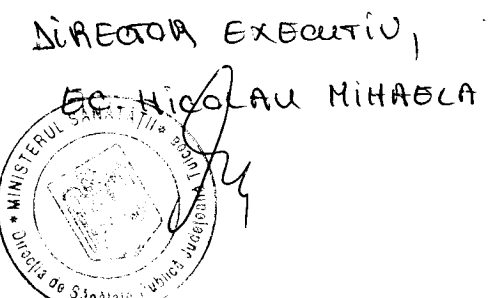 DIRECTOR EXECUTIV,
EC. NICOLAU MIHAELA
* MINISTERUL SĂNĂTĂȚII *
Direcția de Sănătate Publică Județeană Tulcea